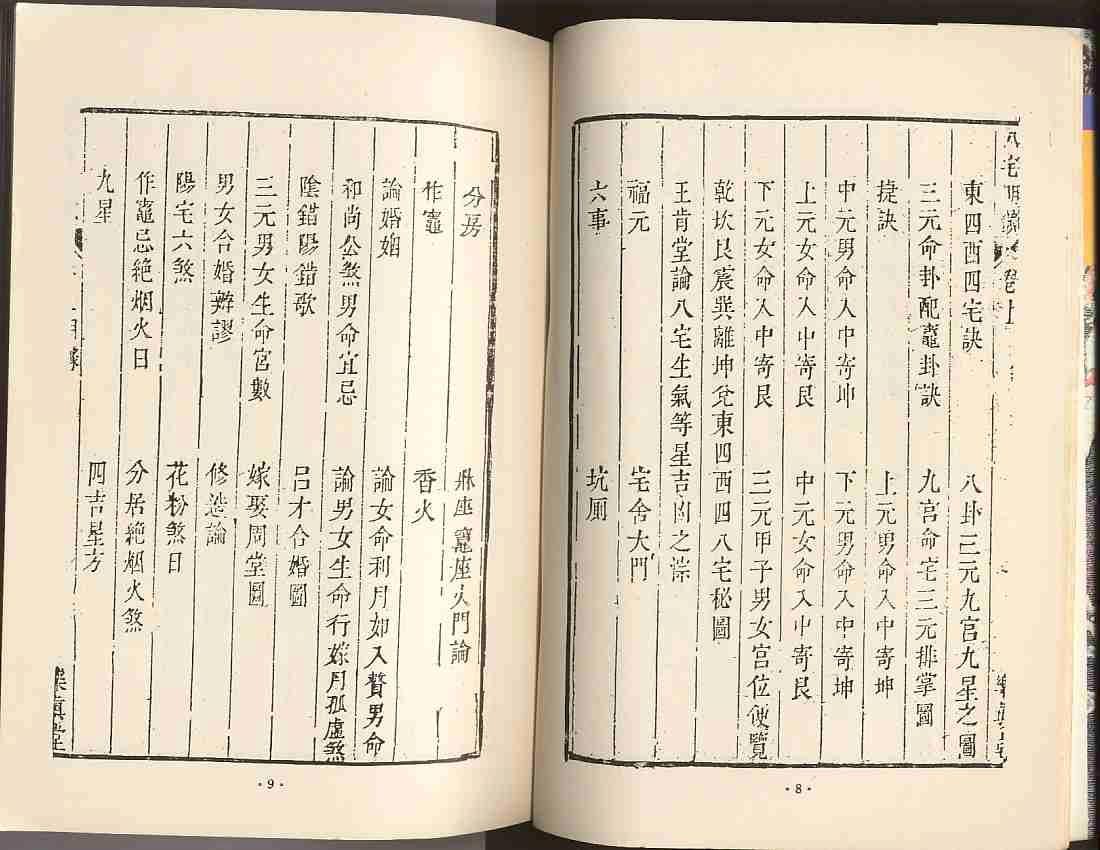 八宅明鏡 卷上
東四西四宅訣 八卦三元九宮九星之圖
三元命卦配竈卦訣 九宮命宅三元排掌圖
捷訣 上元男命入中寄坤
中元男命入中寄坤 下元男命入中寄坤
上元女命入中寄艮 中元女命入中寄艮
下元女命入中寄艮 三元甲子男女宮位便覽
乾坎艮震巽離坤兌東四西四八宅秘圖
王肯堂論八宅生氣等星吉凶之宗
福元 宅舍大門
六事 坑厠
樂真堂
·8·
分房 鼎座竈座火門論
作竈 香火
論婚姻 論女命利月如入贅男命
和尚公煞男命宜忌 論男女生命行嫁月孤虛煞
陰錯陽錯歌 呂才合婚圖
三元男女生命宮數 嫁娶周堂圖
男女合婚辨謬 修造論
陽宅六煞 花粉煞日
作竈忌絕烟火日 分居絕烟火煞
九星 四吉星方
樂真堂
·9·